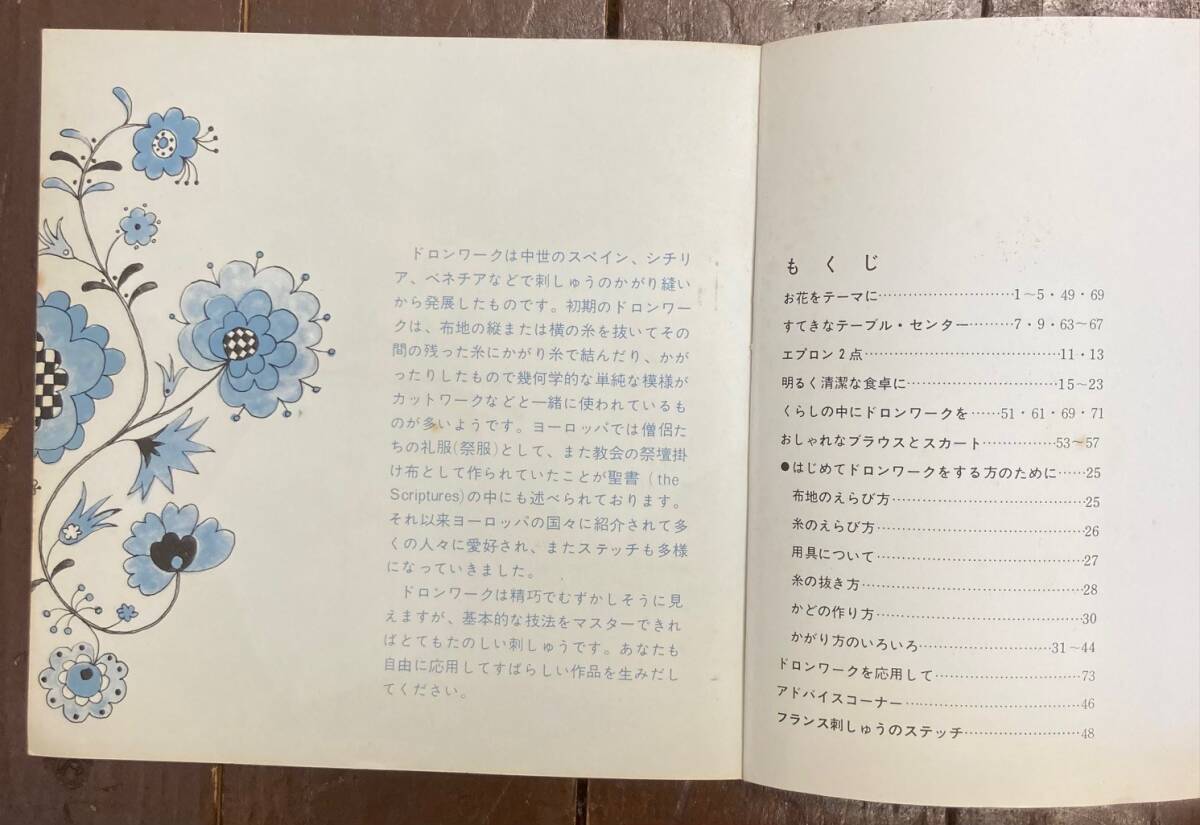 ドロンワークは中世のスペイン、シチリ
ア、ベネチアなどで刺しゅうのかがり縫い
から発展したものです。初期のドロンワー
クは、布地の縦または横の糸を抜いてその
間の残った糸にかがり糸で結んだり、かが
ったりしたもので幾何学的な単純な模様が
カットワークなどと一緒に使われているも
のが多いようです。ヨーロッパでは僧侶た
ちの礼服(祭服)として、また教会の祭壇掛
け布として作られていたことが聖書(the
Scriptures)の中にも述べられております。
それ以来ヨーロッパの国々に紹介されて多
くの人々に愛好され、またステッチも多様
になっていきました。
ドロンワークは精巧でむずかしそうに見
えますが、基本的な技法をマスターできれ
ばとてもたのしい刺しゅうです。あなたも
自由に応用してすばらしい作品を生みだし
てください。
もくじ
お花をテーマに……………………1～5・49・69
すてきなテーブル・センター………7・9・63～67
エプロン2点………………………………11・13
明るく清潔な食卓に………………………15～23
くらしの中にドロンワークを……51・61・69・71
おしゃれなブラウスとスカート…………53～57
●はじめてドロンワークをする方のために……25
布地のえらび方………………………………25
糸のえらび方…………………………………26
用具について…………………………………27
糸の抜き方……………………………………28
かどの作り方…………………………………30
かがり方のいろいろ……………………31～44
ドロンワークを応用して………………………73
アドバイスコーナー……………………………46
フランス刺しゅうのステッチ…………………48